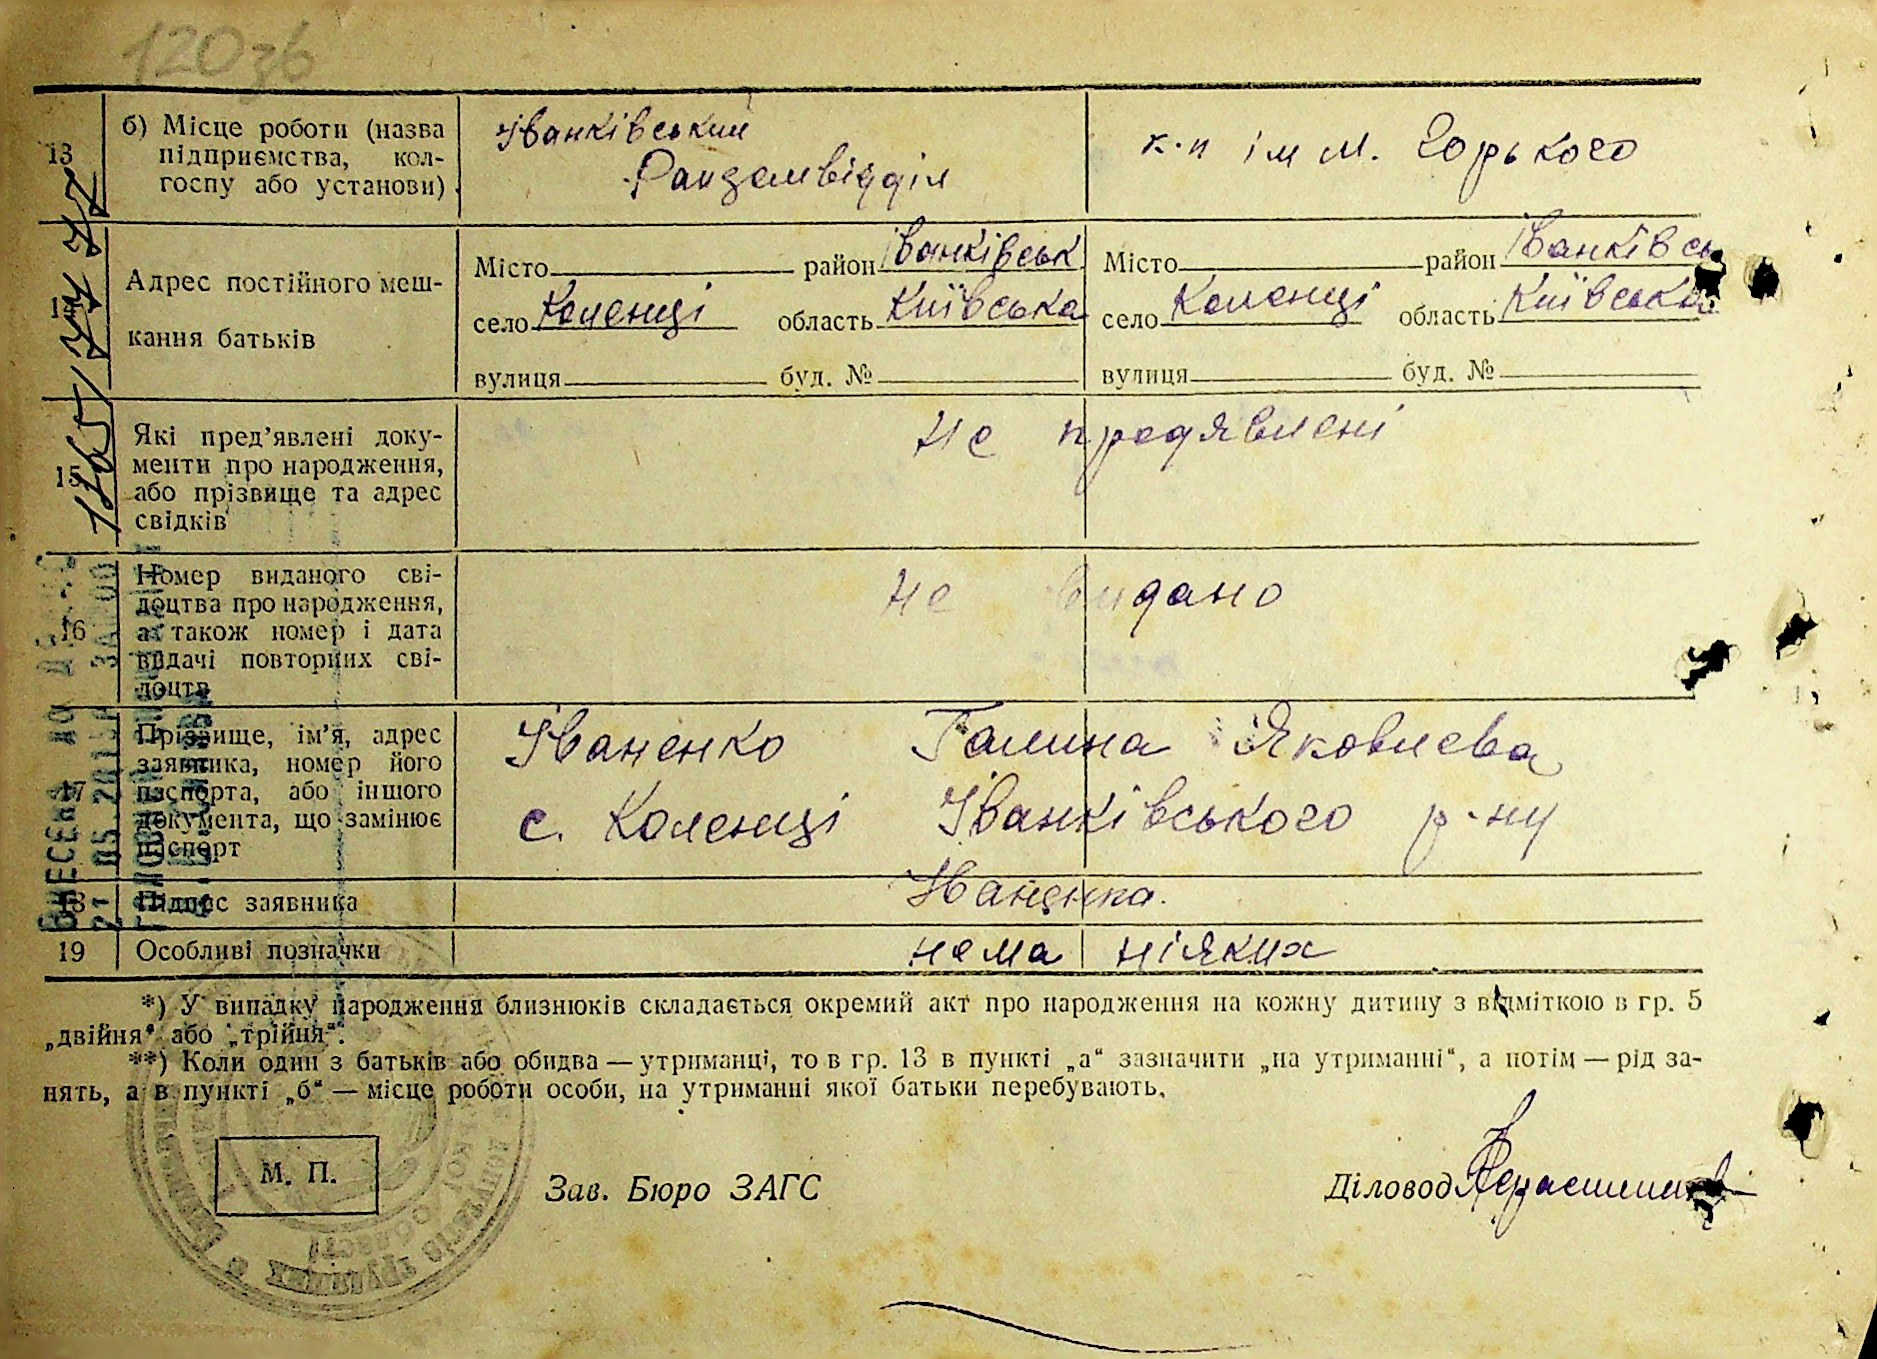 120зв
13
б) Місце роботи (назва
підприємства, кол-
госпу або установи)
Іванківський
Райземвідділ
к-п ім М. Горького
Адрес постійного меш-
кання батьків
Місто район Іванківськ
село Коленці область Київська
вулиця буд. №
Місто район Іванківсь
село Коленці область Київська
вулиця буд. №
15
Які пред'явлені доку-
менти про народження,
або прізвище та адрес
свідків
Не предявлені
16
Номер виданого сві-
доцтва про народження,
а також номер і дата
видачі повторних сві-
доцтв
Не видано
17
Прізвище, ім'я, адрес
заявника, номер його
паспорта, або іншого
документа, що замінює
паспорт
Іваненко Галина Яковлева
с. Коленці Іванківського р-ну
18
Підпис заявника
Іваненко.
19
Особливі позначки
нема ніяких
*) У випадку народження близнюків складається окремий акт про народження на кожну дитину з відміткою в гр. 5
„двійня" або „трійня".
**) Коли один з батьків або обидва — утриманці, то в гр. 13 в пункті „а" зазначити „на утриманні", а потім — рід за-
нять, а в пункті „б" — місце роботи особи, на утриманні якої батьки перебувають.
М. П.
Зав. Бюро ЗАГС
Діловод